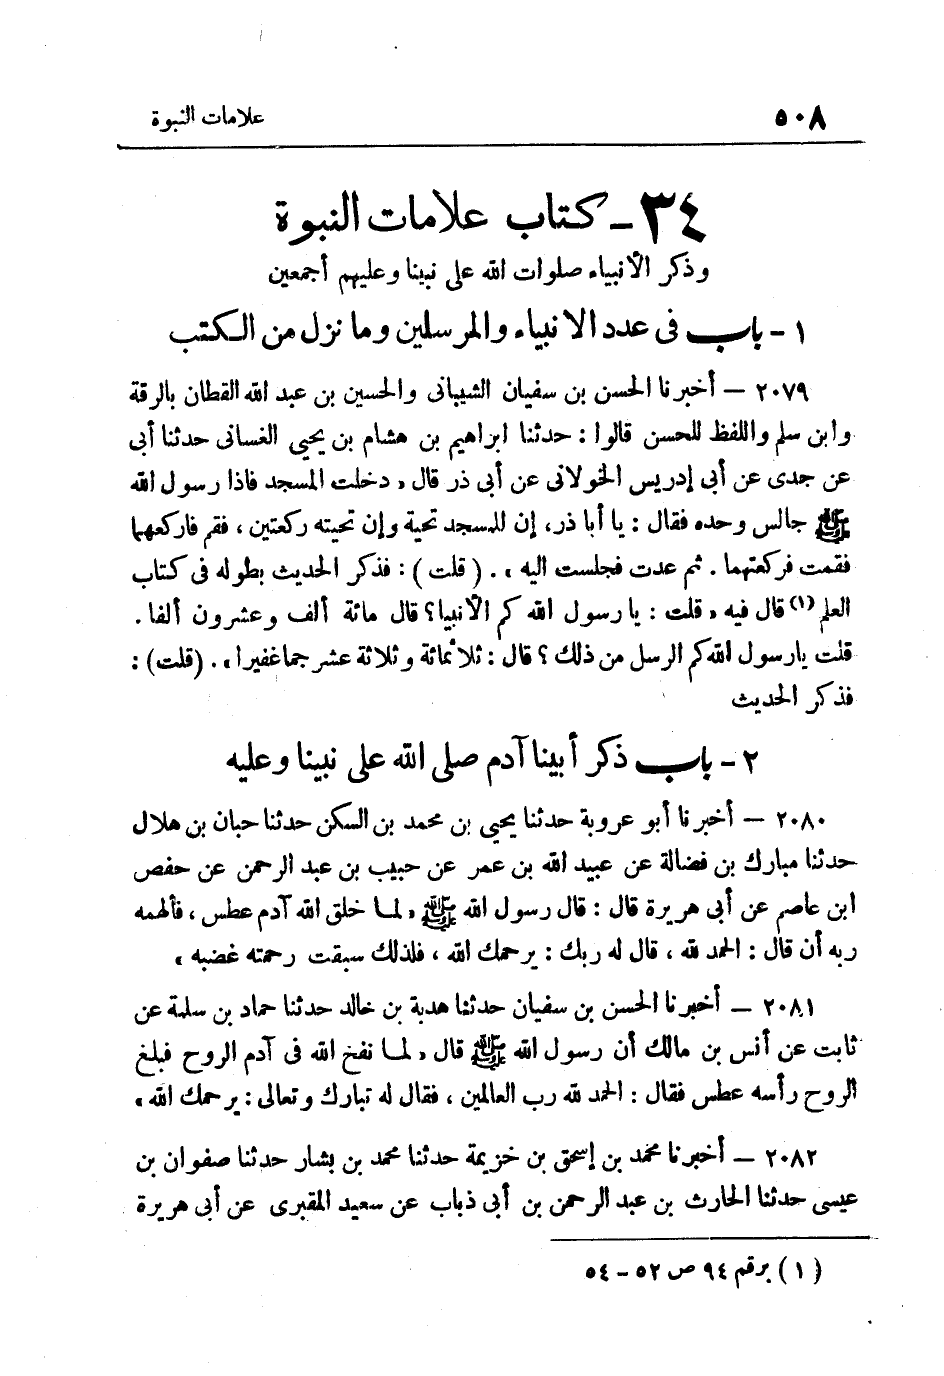 ٥٠٨ علامات النبوة
٣٤ ـ كتاب علامات النبوة
وذكر الأنبياء صلوات الله على نبينا وعليهم أجمعين
١ - باب فى عدد الانبياء والمرسلين وما نزل من الكتب
٢٠٧٩ — أخبرنا الحسن بن سفيان الشيبانى والحسين بن عبد الله القطان بالرقة
وابن سلم واللفظ للحسن قالوا : حدثنا ابراهيم بن هشام بن يحيى الغسانى حدثنا أبى
عن جدى عن أبى إدريس الخولانى عن أبى ذر قال « دخلت المسجد فاذا رسول الله
ﷺ جالس وحده فقال : يا أبا ذر، إن للمسجد تحية وإن تحيته ركعتين ، فقم فاركعهما
فقمت فركعتهما . ثم عدت فجلست اليه » . ( قلت ) : فذكر الحديث بطوله فى كتاب
العلم (١) قال فيه « قلت : يا رسول الله كم الأنبيا؟ قال مائة ألف وعشرون ألفا .
قلت يارسول الله كم الرسل من ذلك ؟ قال : ثلاثمائة وثلاثة عشر جما غفيرا » . (قلت) :
فذكر الحديث
٢ - باب ذكر أبينا آدم صلى الله على نبينا وعليه
٢٠٨٠ — أخبرنا أبو عروبة حدثنا يحيى بن محمد بن السكن حدثنا حبان بن هلال
حدثنا مبارك بن فضالة عن عبيد الله بن عمر عن حبيب بن عبد الرحمن عن حفص
ابن عاصم عن أبى هريرة قال : قال رسول الله ﷺ « لما خلق الله آدم عطس ، فألهمه
ربه أن قال : الحمد لله ، قال له ربك : يرحمك الله ، فلذلك سبقت رحمته غضبه »
٢٠٨١ — أخبرنا الحسن بن سفيان حدثنا هدبة بن خالد حدثنا حماد بن سلمة عن
ثابت عن أنس بن مالك أن رسول الله ﷺ قال « لما نفخ الله فى آدم الروح فبلغ
الروح رأسه عطس فقال : الحمد لله رب العالمين ، فقال له تبارك وتعالى : يرحمك الله »
٢٠٨٢ — أخبرنا محمد بن إسحق بن خزيمة حدثنا محمد بن بشار حدثنا صفوان بن
عيسى حدثنا الحارث بن عبد الرحمن بن أبى ذباب عن سعيد المقبرى عن أبى هريرة
( ١ ) برقم ٩٤ ص ٥٢ – ٥٤